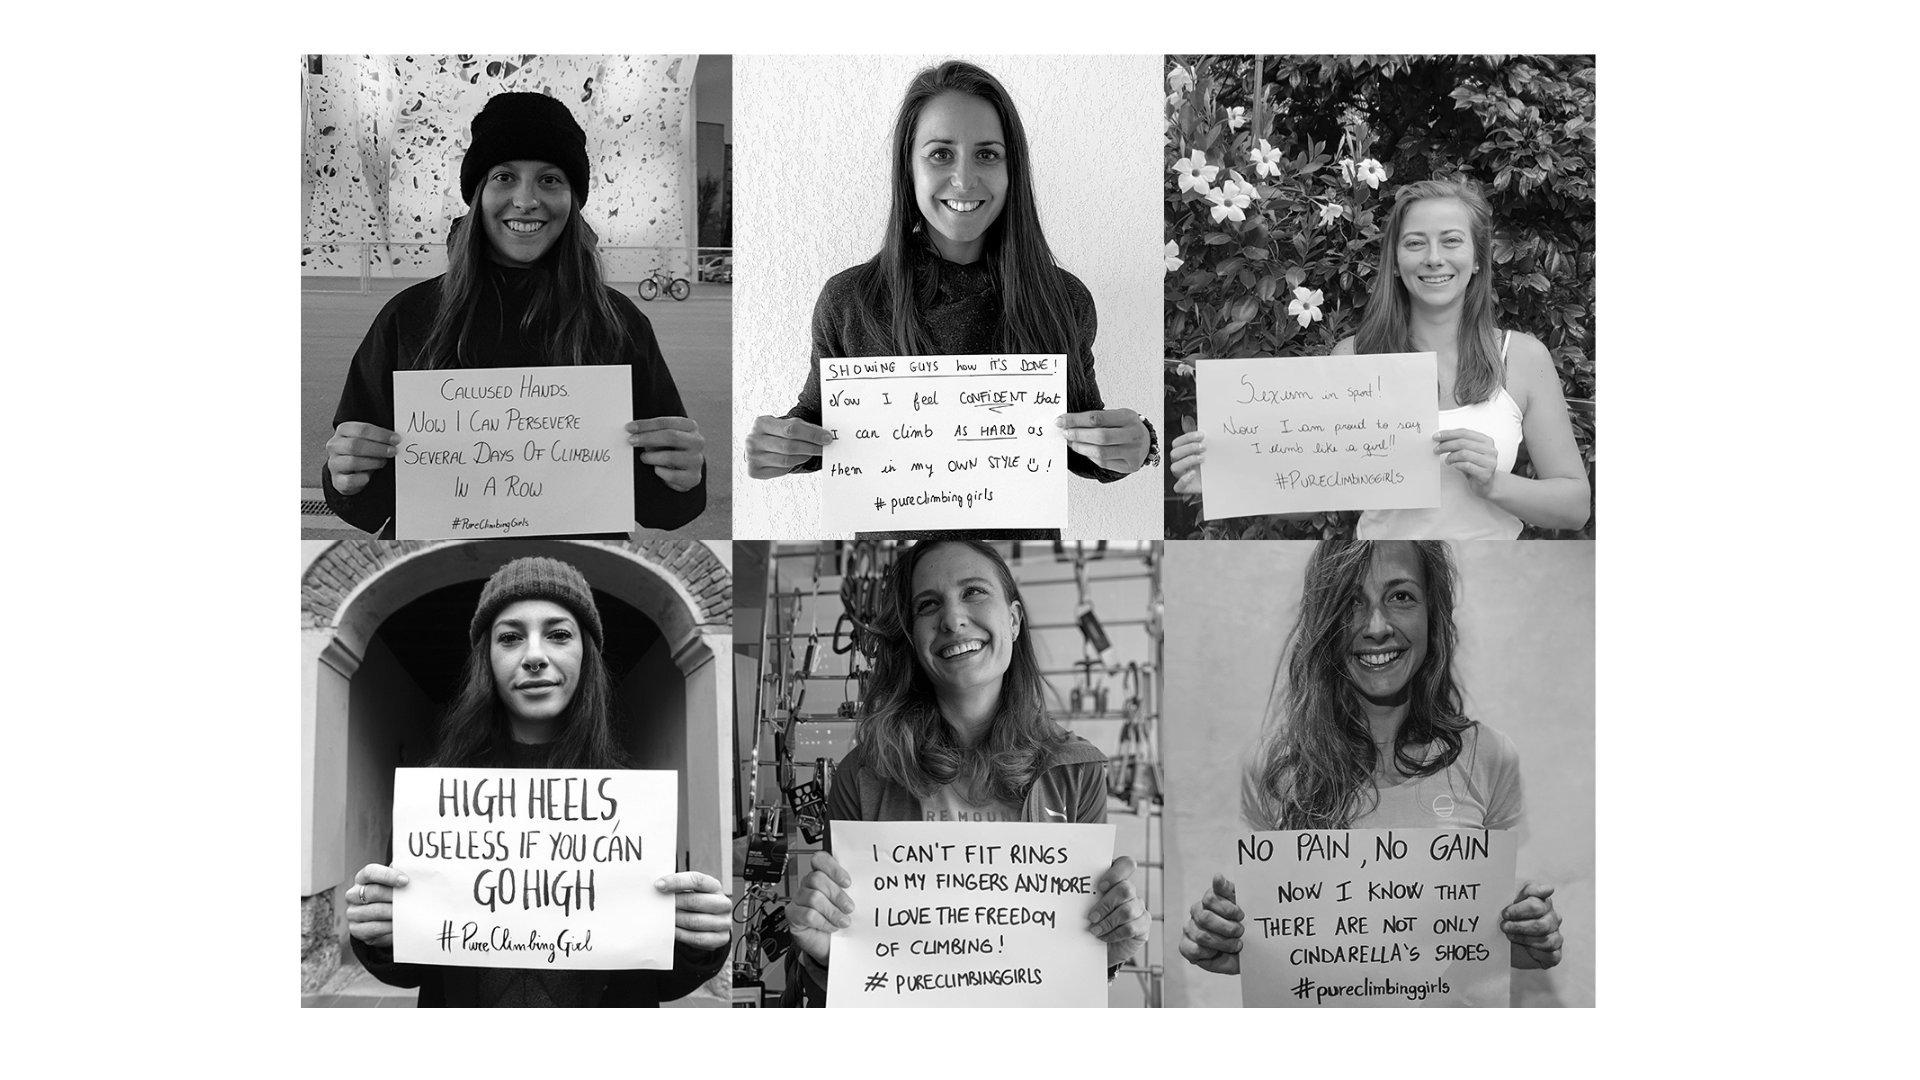 CALLUSED HANDS.
NOW I CAN PERSEVERE
SEVERAL DAYS OF CLIMBING
IN A ROW.
#PureClimbingGirls
SHOWING GUYS how IT'S DONE!
Now I feel CONFIDENT that
I can climb AS HARD as
them in my OWN STYLE !
# pureclimbing girls
Sexism in Sport!
Now I am proud to say
I climb like a girl!!
#PURECLIMBINGGIRLS
HIGH HEELS,
USELESS IF YOU CAN
GO HIGH
#PureClimbingGirl
RE MOUN
I CAN'T FIT RINGS
ON MY FINGERS ANYMORE.
I LOVE THE FREEDOM
OF CLIMBING!
# PURECLIMBINGGIRLS
NO PAIN, NO GAIN
NOW I KNOW THAT
THERE ARE NOT ONLY
CINDARELLA'S SHOES
#pureclimbinggirls